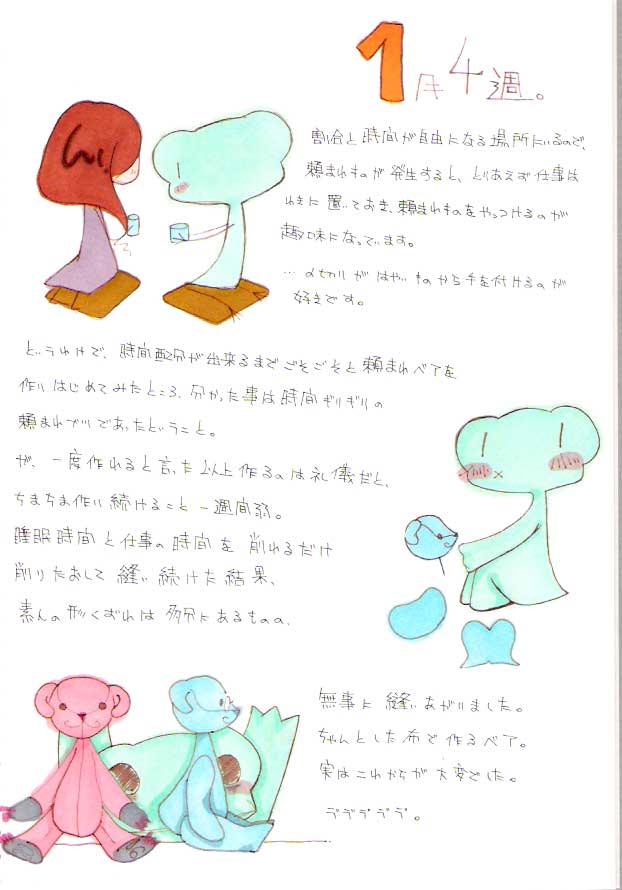 1月4週。
割合と時間が自由になる場所にいるので、
頼まれものが発生すると、とりあえず仕事は
わきに置いておき、頼まれものをやっつけるのが
趣味になっています。
…〆切りがはやいものから手を付けるのが
好きです。
というわけで、時間配分が出来るまでごそごそと頼まれベアを
作りはじめてみたところ、分かった事は時間ギリギリの
頼まれブリであったということ。
が、一度作れると言った以上作るのは礼儀だと、
ちまちま作り続けること一週間弱。
睡眠時間と仕事の時間を削れるだけ
削りたおして縫い続けた結果、
素人の形くずれは多分にあるものの、
無事に縫いあがりました。
ちゃんとした布で作るベア。
実はこれからが大変でした。
デデデデデ。